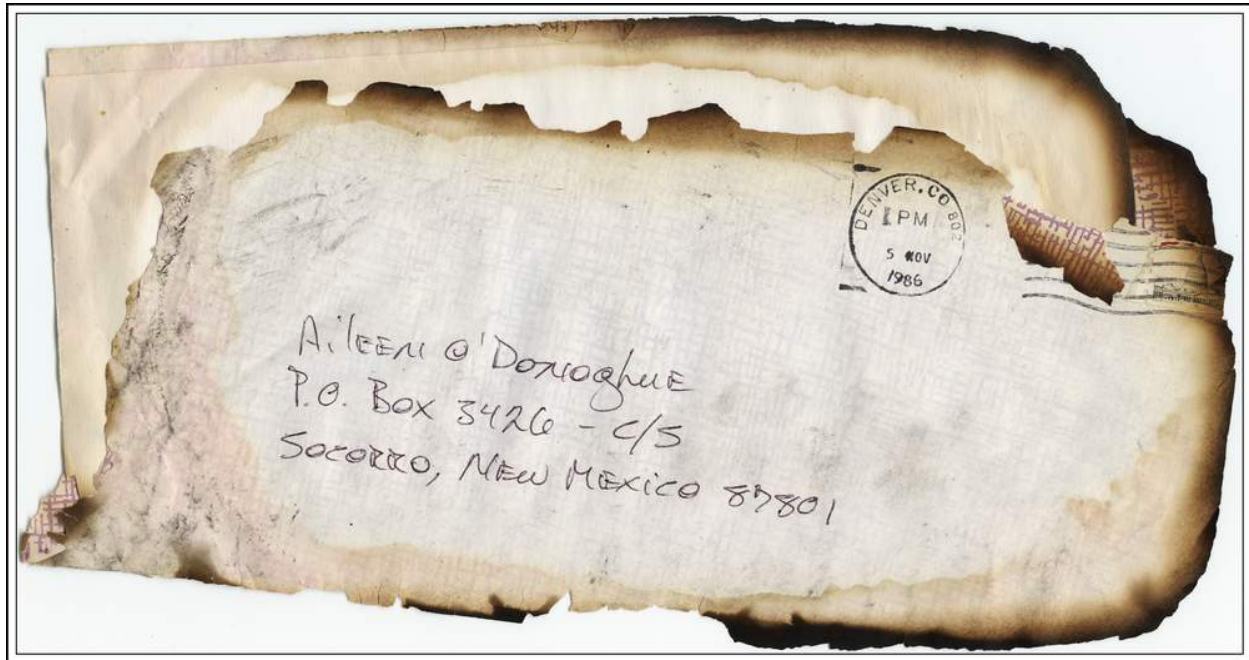 DENVER, CO 802
PM
5 NOV
1986
Aileen O'Donoghue
P.O. Box 3426 - C/S
Socorro, New Mexico 87801